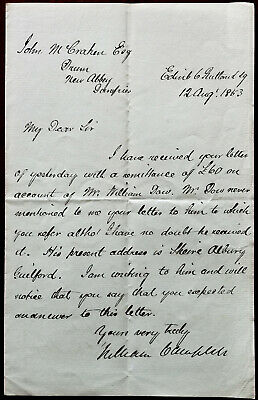 John McCraken Esq
Drum
New Abbey
Dumfries
Edinb 6 Rutland Sq
12 Augt 1883
My Dear Sir
I have received your letter
of yesterday with a remittance of £60 on
account of Mr. William Daw. Mr. Daw never
mentioned to me your letter to him to which
you refer altho' I have no doubt he received
it. His present address is Sheire Albury
Guilford. I am writing to him and will
notice that you say that you expected
an answer to this letter.
Yours very truly
William Campbell